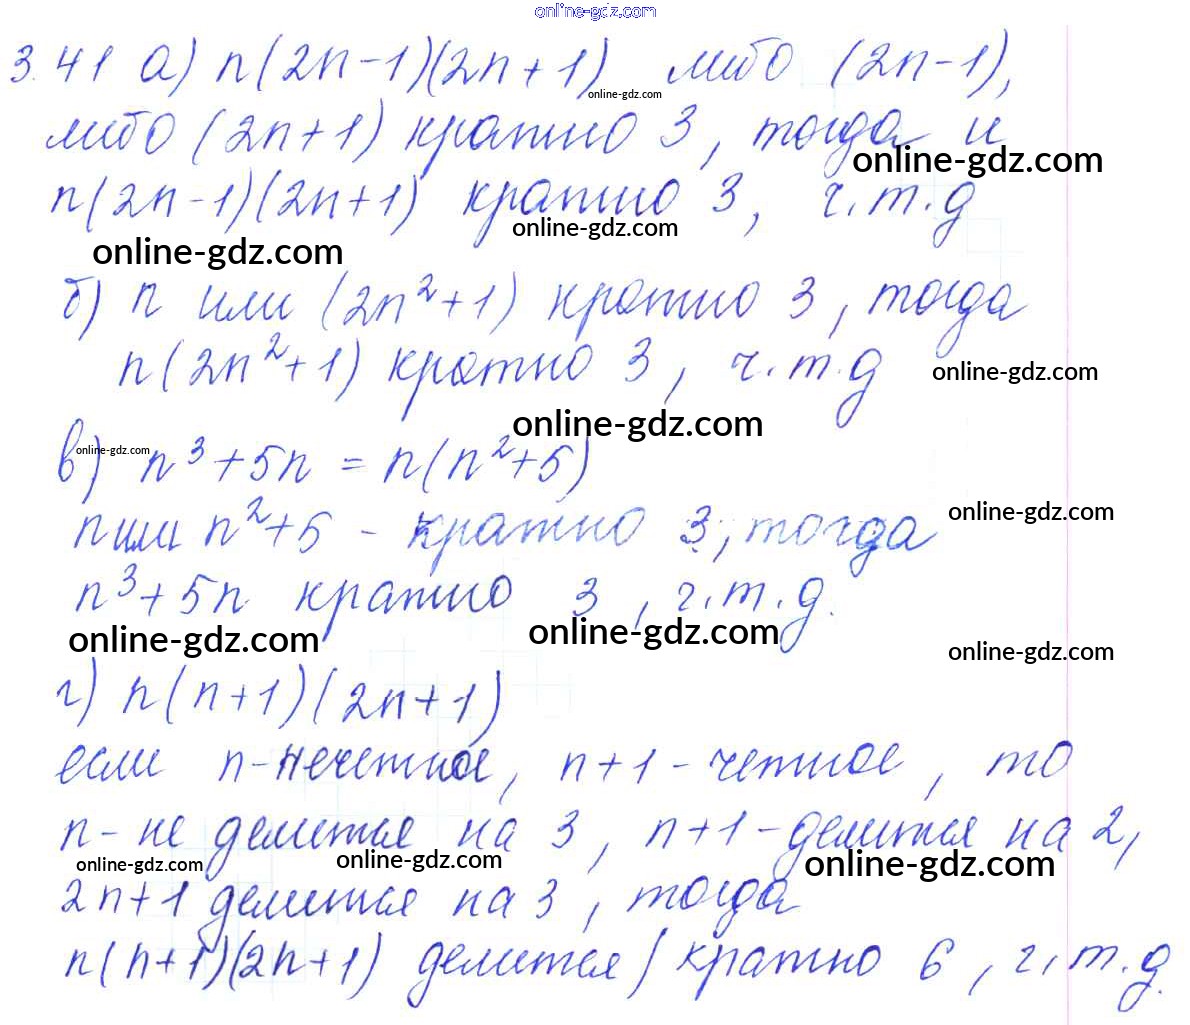 online-gdz.com
3.41 а) n(2n-1)(2n+1) либо (2n-1),
online-gdz.com
либо (2n+1) кратно 3, тогда и
online-gdz.com
n(2n-1)(2n+1) кратно 3, ч.т.д
online-gdz.com
online-gdz.com
б) n или (2n²+1) кратно 3, тогда
n(2n²+1) кратно 3, ч.т.д
online-gdz.com
online-gdz.com
в) n³+5n = n(n²+5)
online-gdz.com
n или n²+5 - кратно 3, тогда
online-gdz.com
n³+5n кратно 3, ч.т.д.
online-gdz.com
online-gdz.com
online-gdz.com
г) n(n+1)(2n+1)
если n-нечетное, n+1-четное, то
n- не делится на 3, n+1-делится на 2,
online-gdz.com
online-gdz.com
online-gdz.com
2n+1 делится на 3, тогда
n(n+1)(2n+1) делится/кратно 6, ч.т.д.